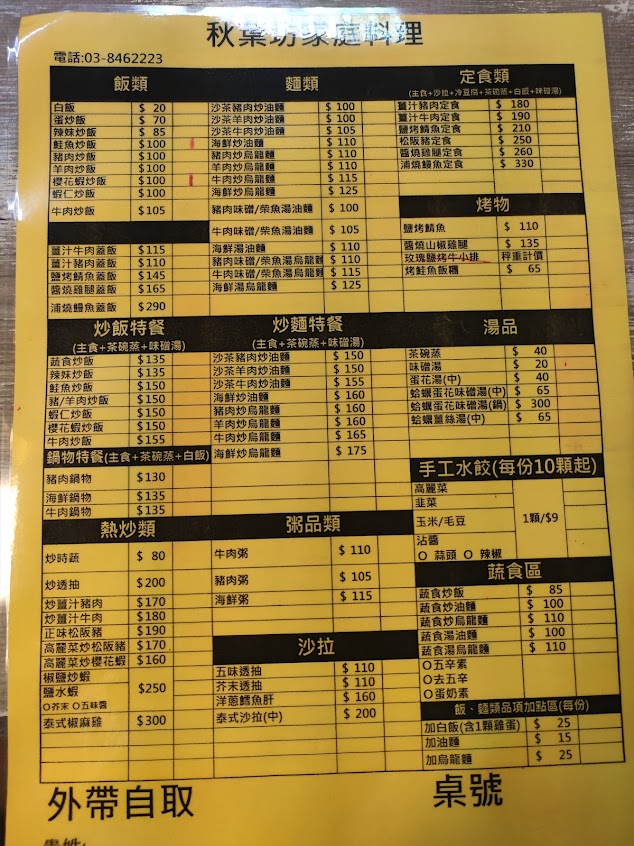 秋葉坊家庭料理
電話:03-8462223
飯類
白飯 $ 20
蛋炒飯 $ 70
辣妹炒飯 $ 85
鮭魚炒飯 $100
豬肉炒飯 $100
羊肉炒飯 $100
櫻花蝦炒飯 $100
蝦仁炒飯 $100
牛肉炒飯 $105
薑汁牛肉蓋飯 $115
薑汁豬肉蓋飯 $110
鹽烤鯖魚蓋飯 $145
醬燒雞腿蓋飯 $165
浦燒鰻魚蓋飯 $290
炒飯特餐
(主食+茶碗蒸+味磳湯)
蔬食炒飯 $135
辣妹炒飯 $135
鮭魚炒飯 $150
豬/羊肉炒飯 $150
蝦仁炒飯 $150
櫻花蝦炒飯 $150
牛肉炒飯 $155
鍋物特餐(主食+茶碗蒸+白飯)
豬肉鍋物 $130
海鮮鍋物 $135
牛肉鍋物 $135
熱炒類
炒時蔬 $ 80
炒透抽 $200
炒薑汁豬肉 $170
炒薑汁牛肉 $180
正味松阪豬 $190
高麗菜炒松阪豬 $170
高麗菜炒櫻花蝦 $160
椒鹽炒蝦
鹽水蝦 $250
O芥末 O五味醬
泰式椒麻雞 $300
麵類
沙茶豬肉炒油麵 $ 100
沙茶羊肉炒油麵 $ 100
沙茶牛肉炒油麵 $ 105
海鮮炒油麵 $ 110
豬肉炒烏龍麵 $ 110
羊肉炒烏龍麵 $ 110
牛肉炒烏龍麵 $ 115
海鮮炒烏龍麵 $ 125
豬肉味磳/柴魚湯油麵 $ 100
牛肉味磳/柴魚湯油麵 $ 105
海鮮湯油麵 $ 110
豬肉味磳/柴魚湯烏龍麵 $ 110
牛肉味磳/柴魚湯烏龍麵 $ 115
海鮮湯烏龍麵 $ 125
炒麵特餐
(主食+茶碗蒸+味磳湯)
沙茶豬肉炒油麵 $ 150
沙茶羊肉炒油麵 $ 150
沙茶牛肉炒油麵 $ 155
海鮮炒油麵 $ 160
豬肉炒烏龍麵 $ 160
羊肉炒烏龍麵 $ 160
牛肉炒烏龍麵 $ 165
海鮮炒烏龍麵 $ 175
粥品類
牛肉粥 $ 110
豬肉粥 $ 105
海鮮粥 $ 115
沙拉
五味透抽 $ 110
芥末透抽 $ 110
洋蔥鱈魚肝 $ 160
泰式沙拉(中) $ 200
定食類
(主食+沙拉+冷豆腐+茶碗蒸+白飯+味磳湯)
薑汁豬肉定食 $ 180
薑汁牛肉定食 $ 190
鹽烤鯖魚定食 $ 210
松阪豬定食 $ 250
醬燒雞腿定食 $ 260
浦燒鰻魚定食 $ 330
烤物
鹽烤鯖魚 $ 110
醬燒山椒雞腿 $ 135
玫瑰鹽烤牛小排 秤重計價
烤鮭魚飯糰 $ 65
湯品
茶碗蒸 $ 40
味磳湯 $ 20
蛋花湯(中) $ 40
蛤蠣蛋花味磳湯(中) $ 65
蛤蠣蛋花味磳湯(鍋) $ 300
蛤蠣薑絲湯(中) $ 65
手工水餃(每份10顆起)
高麗菜
韭菜
玉米/毛豆 1顆/$9
沾醬
O 蒜頭 O 辣椒
蔬食區
蔬食炒飯 $ 85
蔬食炒油麵 $ 100
蔬食炒烏龍麵 $ 110
蔬食湯油麵 $ 100
蔬食湯烏龍麵 $ 110
O五辛素
O去五辛
O蛋奶素
飯、麵類品項加點區(每份)
加白飯(含1顆雞蛋) $ 25
加油麵 $ 15
加烏龍麵 $ 25
外帶自取
桌號